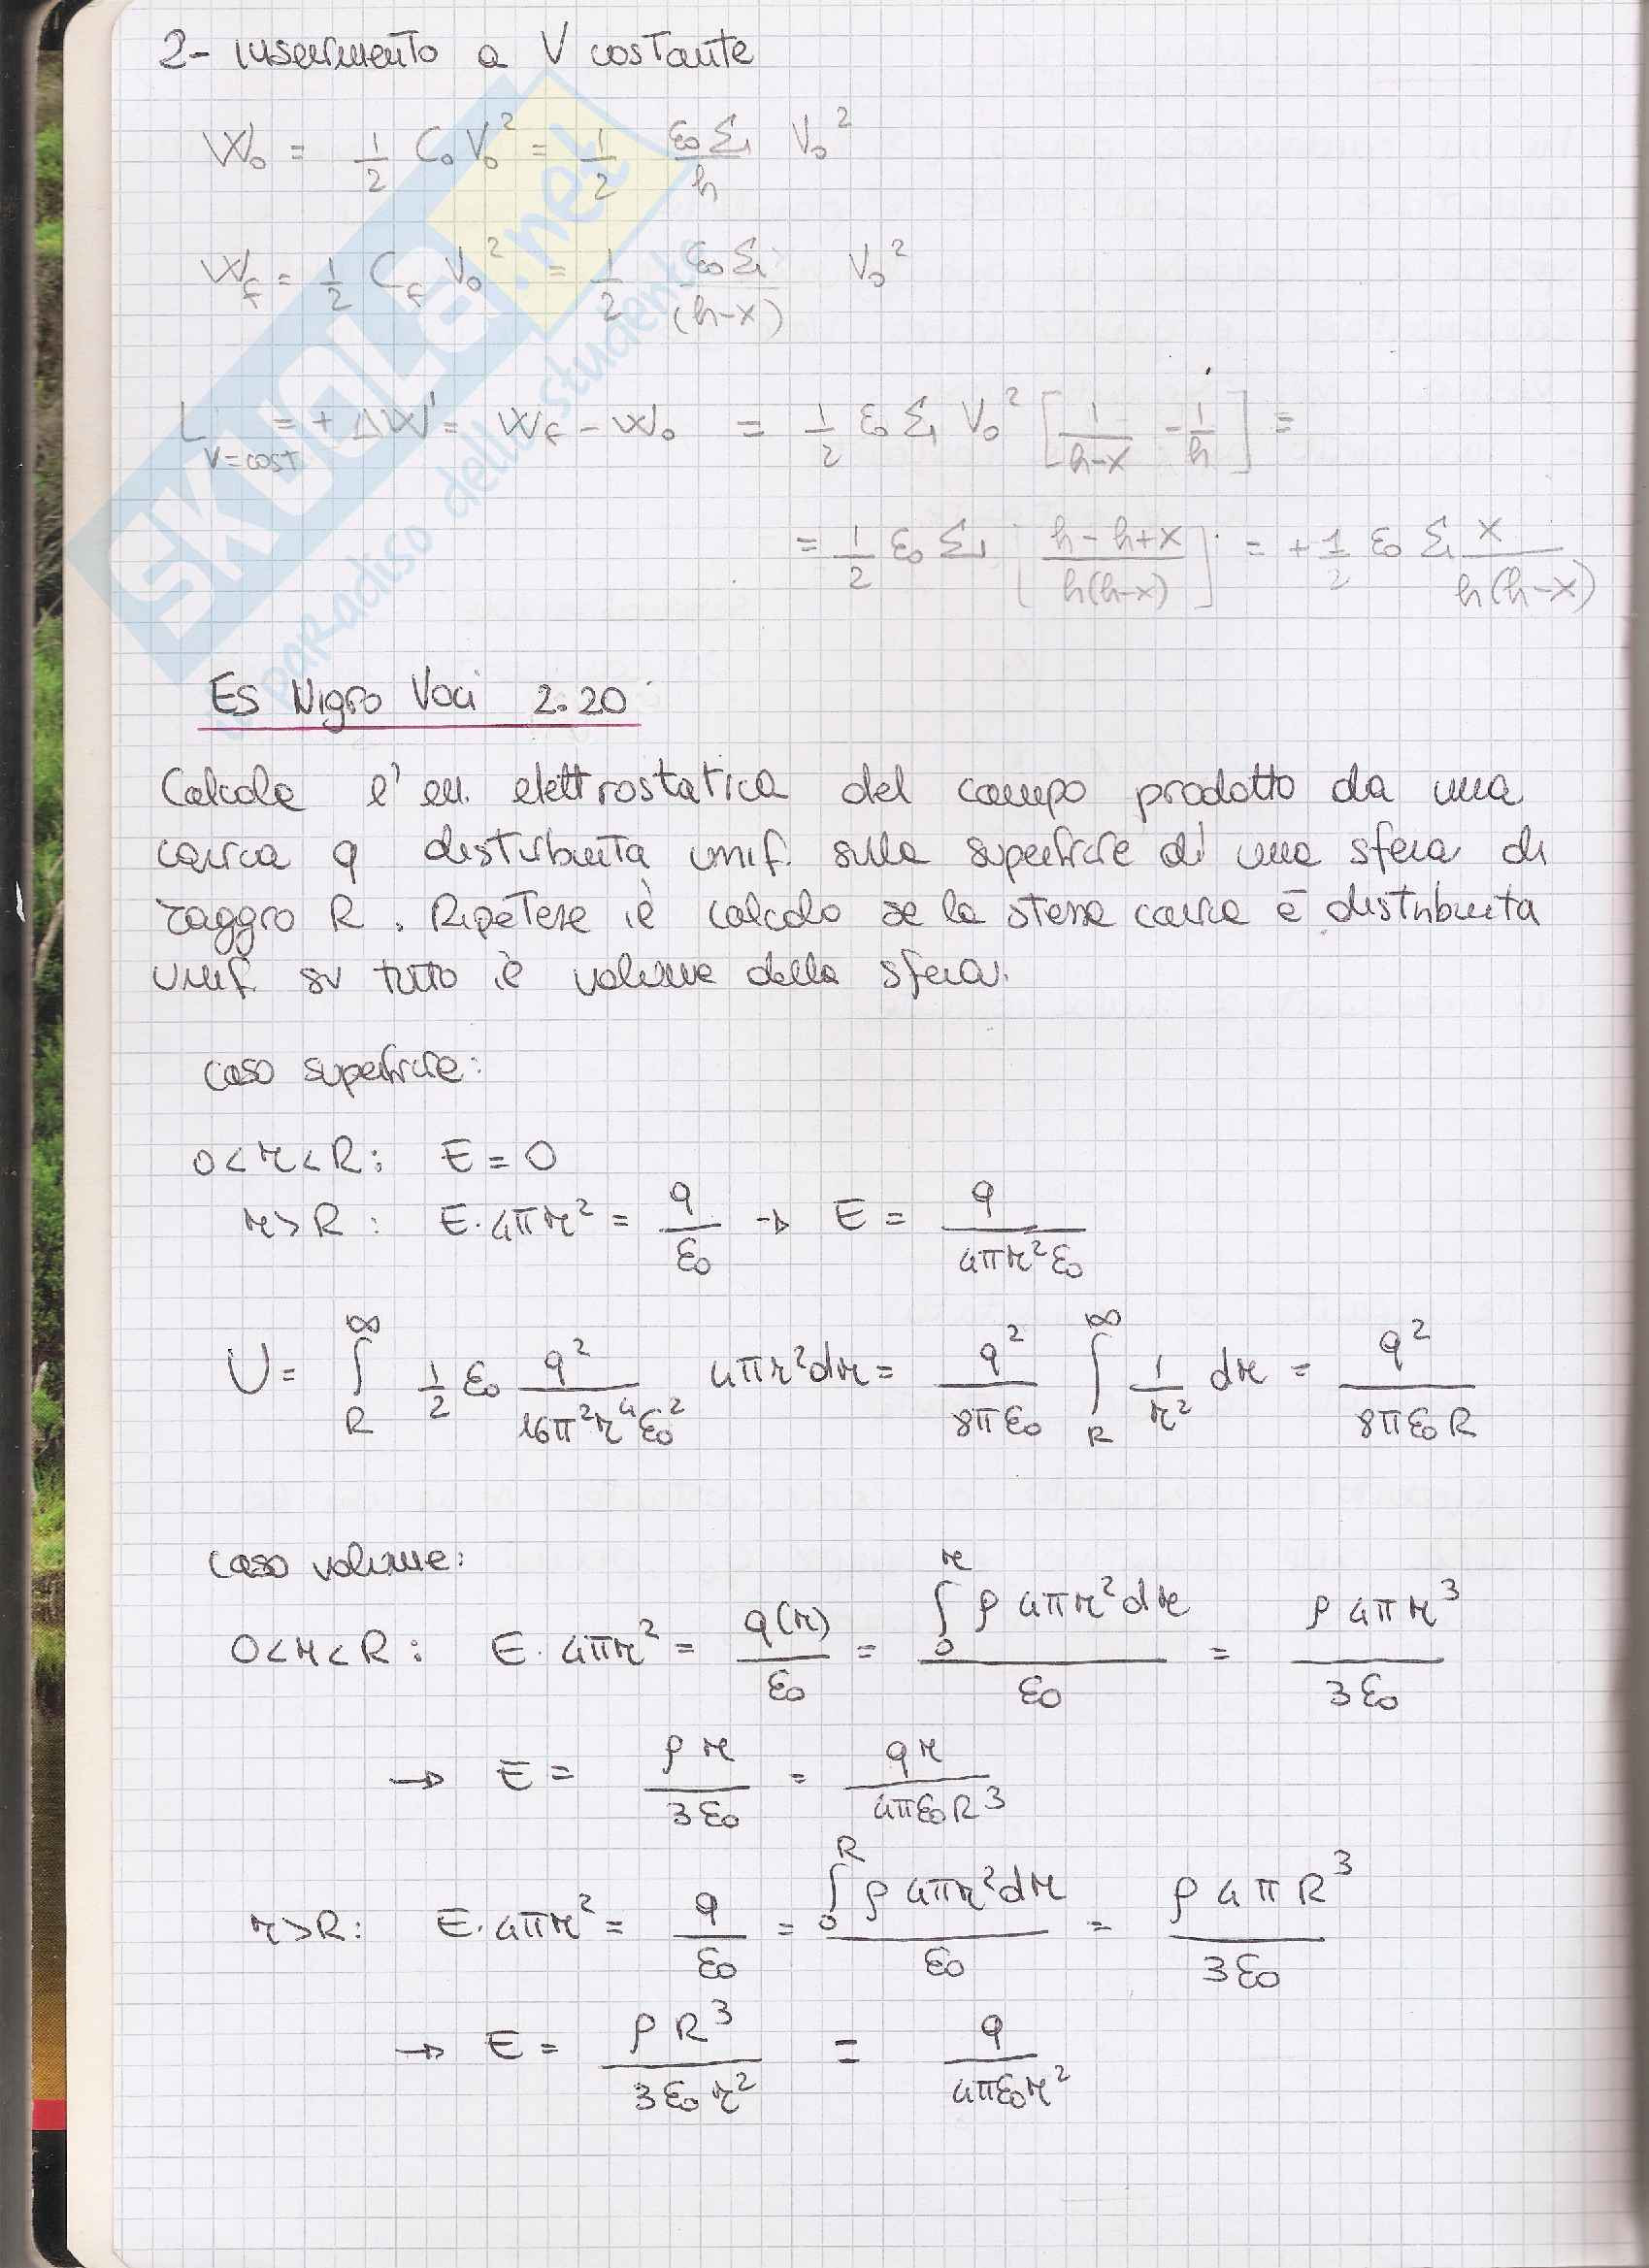 2- inserimento a V costante
W₀ = 1/2 C₀ V₀² = 1/2 ε₀Σ/h V₀²
W_f = 1/2 C_f V₀² = 1/2 ε₀Σ/(h-x) V₀²
L_{V=cost} = + ΔW = W_f - W₀ = 1/2 ε₀ Σ V₀² [1/(h-x) - 1/h] =
= 1/2 ε₀ Σ [(h-h+x)/(h(h-x))] = + 1/2 ε₀ Σ x/(h(h-x))
SKUOLA.net
paradiso dello studente
Es Nigro Voci 2.20
Calcola l'en. elettrostatica del campo prodotto da una
carica q distribuita unif. sulla superficie di una sfera di
raggio R. Ripetere il calcolo se la stessa carica è distribuita
unif. su tutto il volume della sfera.
caso superficie:
0<r<R: E=0
r>R: E·4πr² = q/ε₀ → E = q/(4πr²ε₀)
U = ∫_R^∞ 1/2 ε₀ q²/(16π²r⁴ε₀²) 4πr²dr = q²/(8πε₀) ∫_R^∞ 1/r² dr = q²/(8πε₀R)
caso volume:
0<r<R: E·4πr² = q(r)/ε₀ = (∫_0^r ρ4πr²dr)/ε₀ = ρ4πr³/(3ε₀)
→ E = ρr/(3ε₀) = qr/(4πε₀R³)
r>R: E·4πr² = q/ε₀ = (∫_0^R ρ4πr²dr)/ε₀ = ρ4πR³/(3ε₀)
→ E = ρR³/(3ε₀r²) = q/(4πε₀r²)